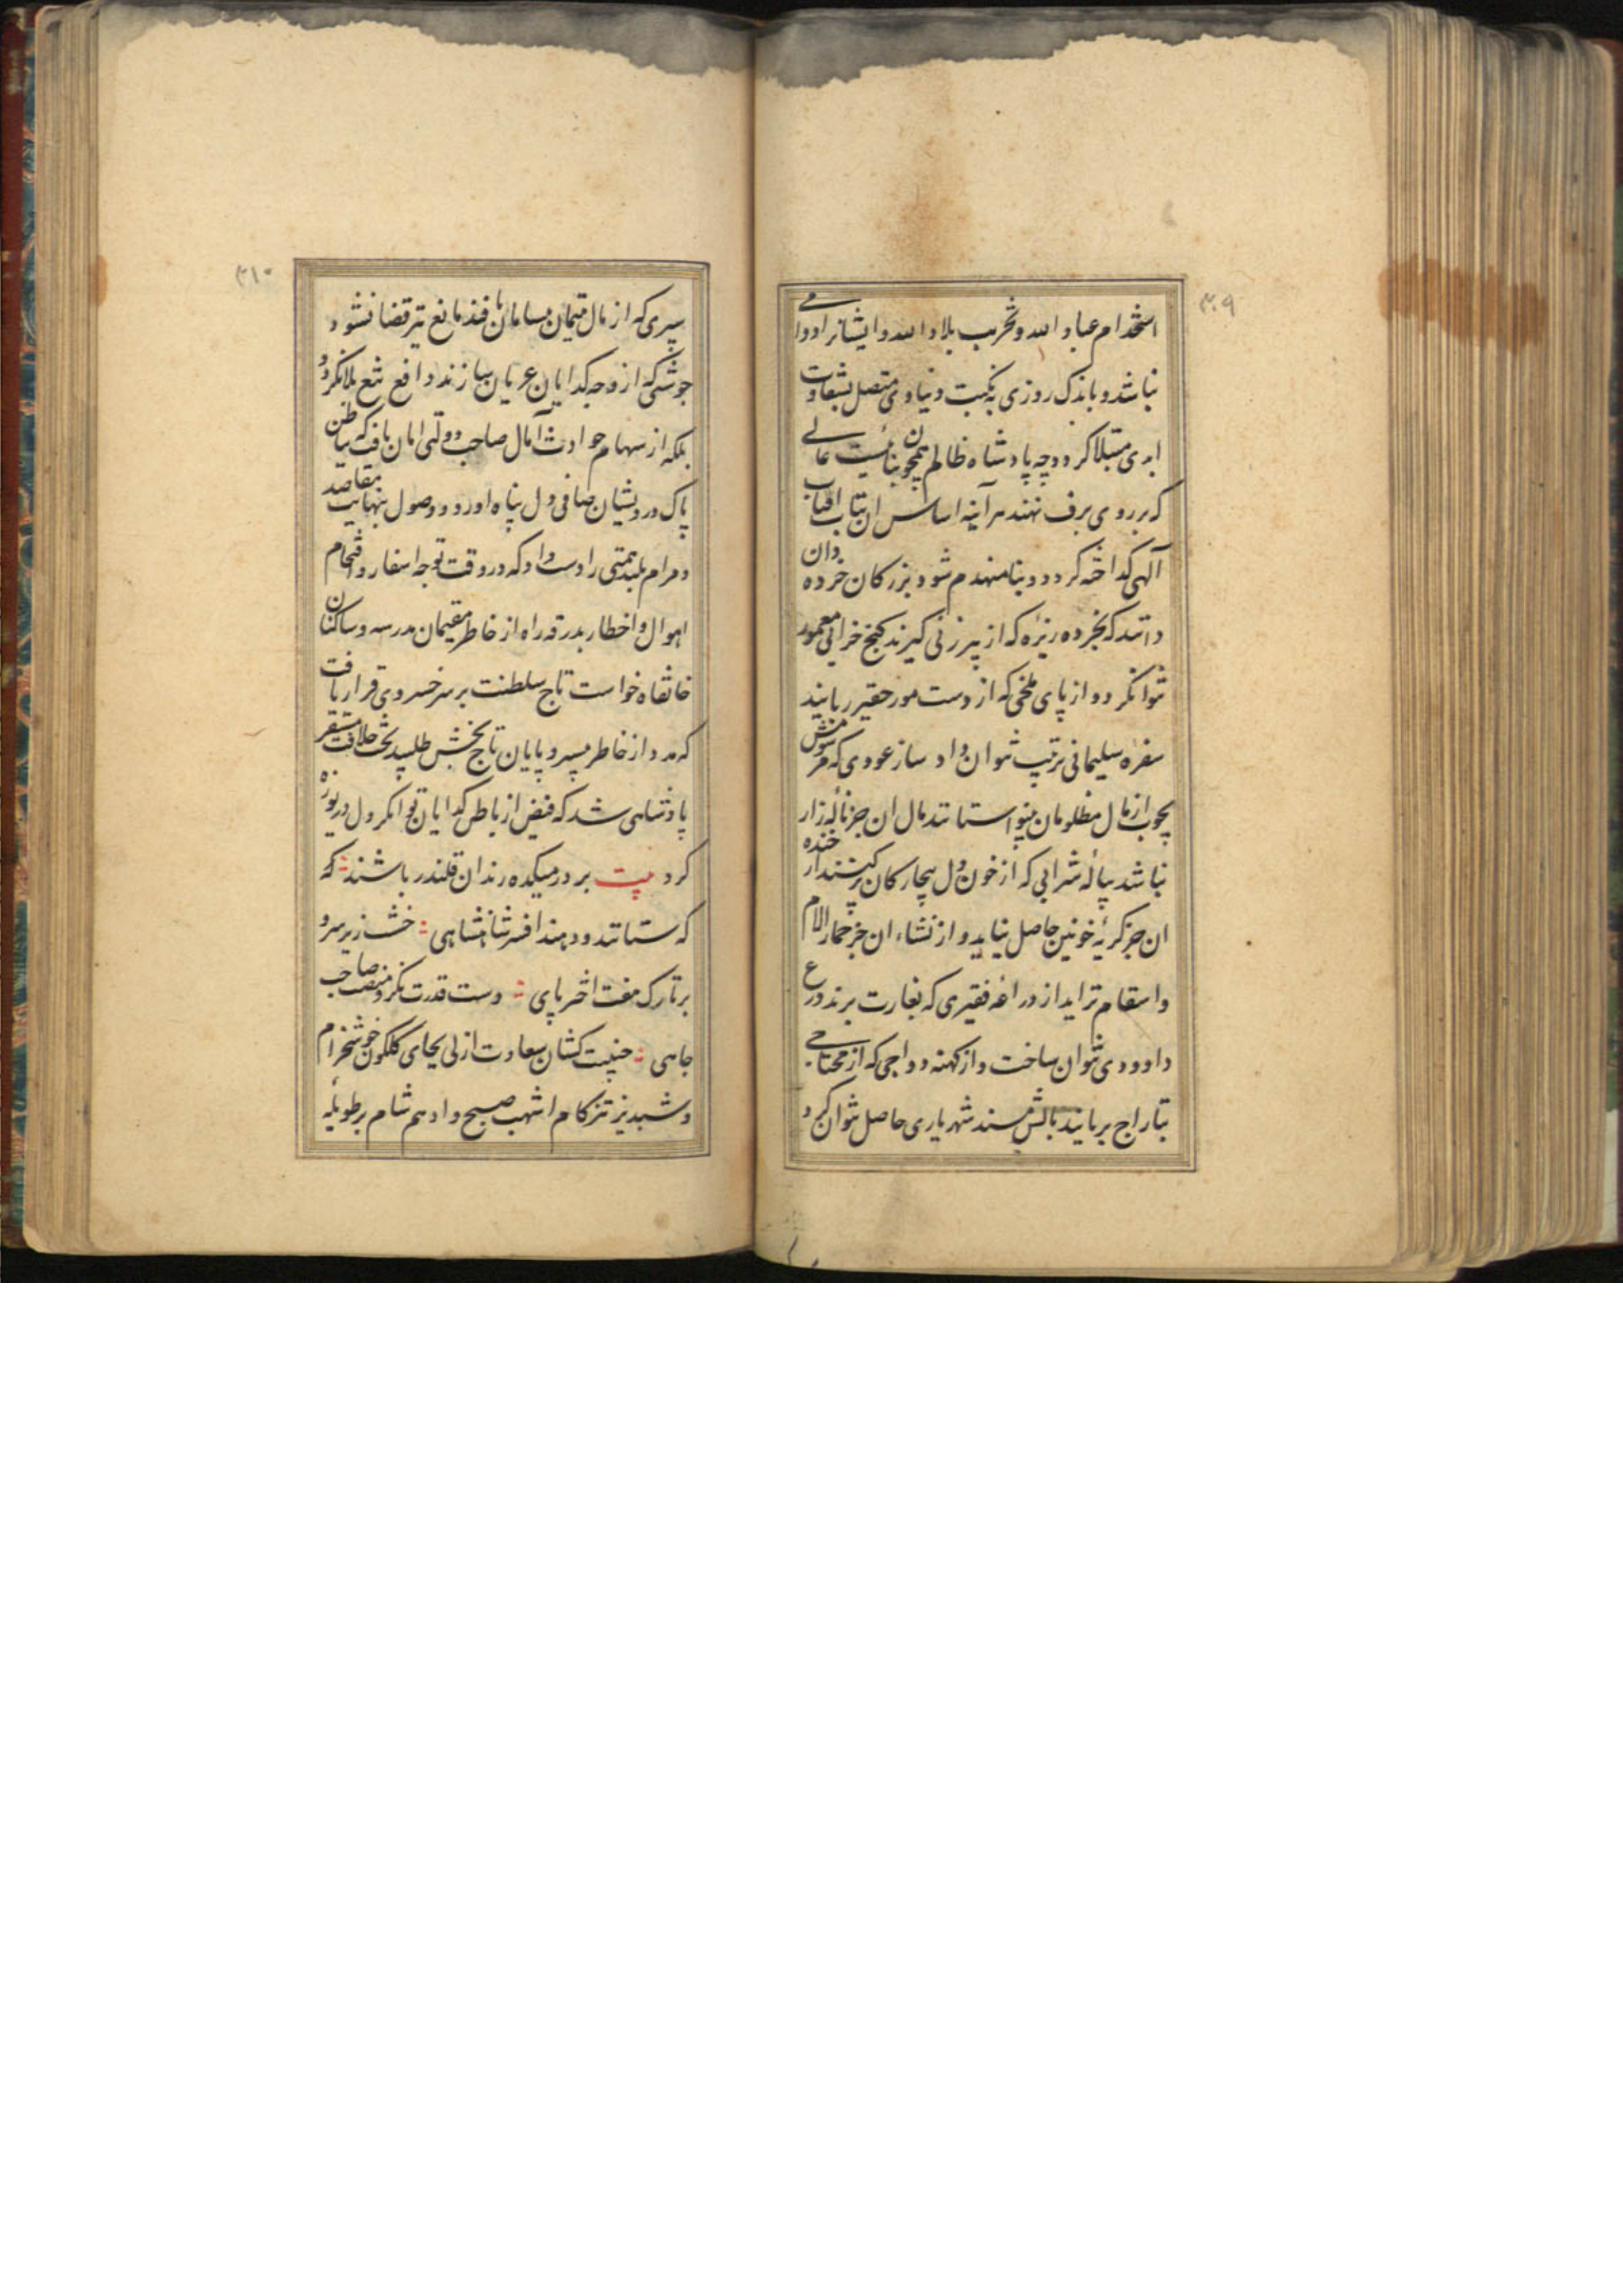 ۳۰۹
استخدام عباد الله و تخریب بلاد الله و ایشانرا دوامی
نباشد و باندک روزی به نکبت دنیاوی متصل بشقاوت
ابدی مبتلا کردد چه پادشاه ظالم همچون بنائیست عالی
که بر روی برف نهند هر آینه اساس ان بتاب افتاب
آلهی کداخته کردد و بنا منهدم شود بزرکان خرده دان
دانند که بخرده ریزه که از پیر زنی کیرند کنج خرابی معمور
نتوان کرد و از پای ملخی که از دست مور حقیر ربایند
سفره سلیمانی ترتیب نتوان داد ساز عودی که
بچوب از مال مظلومان ستانند مال ان جز ناله زار
نباشد پیاله شرابی که از خون دل بیچارکان پر کنند از خنده
ان جز کریه خونین حاصل نیاید و از نشاء ان جز خمار الام
و اسقام نزاید از دراعه فقیری که بغارت برند درع
داوودی نتوان ساخت و از کهنه دواجی که از محتاجی
بتاراج بربایند بالش مسند شهریاری حاصل نتوان کرد
۳۱۰
سپری که از مال یتیمان بسامان یافند مانع تیر قضا نشود
جوشنی که از وجه کدایان عریان سازند دافع تیغ بلا نکردد
بلکه از سهام حوادث آمال صاحب دولتی امان یافت که بباطن
پاک درویشان صافی دل پناه اورد و وصول بنهایت مقاصد
و مرام بلند همتی را دست داد که در وقت توجه اسفار و اقتحام
اهوال و اخطار بدرقه راه از خاطر مقیمان مدرسه و ساکنان
خانقاه خواست تاج سلطنت بر سر خسروی قرار یافت
که مدد از خاطر بی سر و پایان تاج بخش طلبید تخت خلافت مستقر
پادشاهی شد که فیض از باطن کدایان توانکر دل دریوزه
کرد بیت بر در میکده رندان قلندر باشند که
که ستانند و دهند افسر شاهنشاهی خشت زیر سر و
بر تارک هفت اختر پای دست قدرت نکر و منصب صاحب
جاهی جنیبت کشان سعادت ازلی بجای کلکون خوشخرام
و شبدیز تیز کام اشهب صبح و ادهم شام بر طویله